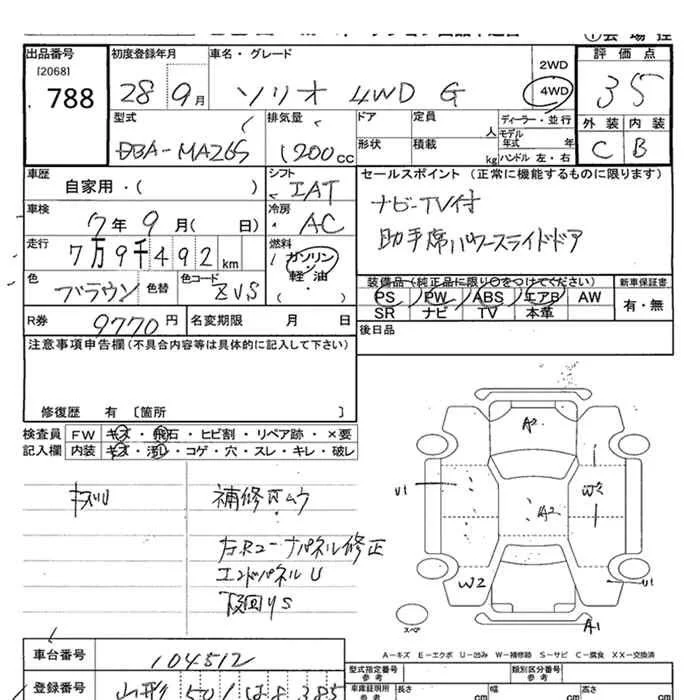 出品番号
[2068]
788
初度登録年月
28 9月
車名・グレード
ソリオ 4WD G
2WD
4WD
評価点
3 5
外装 内装
C B
型式
DBA-MA26S
排気量
1200cc
ドア
定員
人
形状
積載
kg
ディーラー・並行
モデル年式 年
ハンドル 左・右
車歴
自家用・( )
シフト
IAT
セールスポイント(正常に機能するものに限ります)
ナビ-TV付
助手席パワースライドドア
車検
7年 9月( 日)
冷房
AC
走行
7万9千492km
燃料
ガソリン
軽・油
( )
色
ブラウン
色替
色コード
ZVS
装備品(純正品に限り○をつけてください)
PS PW ABS エアB AW
SR ナビ TV 本革
新車保証書
有・無
R券
9770円
名変期限 月 日
後日品
注意事項申告欄(不具合内容等は具体的に記入して下さい)
修復歴 有〔箇所 〕
検査員
記入欄
FW キズ・飛石・ヒビ割・リペア跡・×要
内装 キズ・汚れ・コゲ・穴・スレ・キレ・破レ
補修
修正
エンドパネルU
U1
A2
A2
W2
W2
U1
A1
スペア
A-キズ E-エクボ U-凹み W-補修跡 S-サビ C-腐食 XX-交換済
車台番号
104512
登録番号
山形 501 は 8385
型式指定番号
参考
類別区分番号
参考
車庫証明用
参考
長さ
cm
幅
cm
高さ
cm